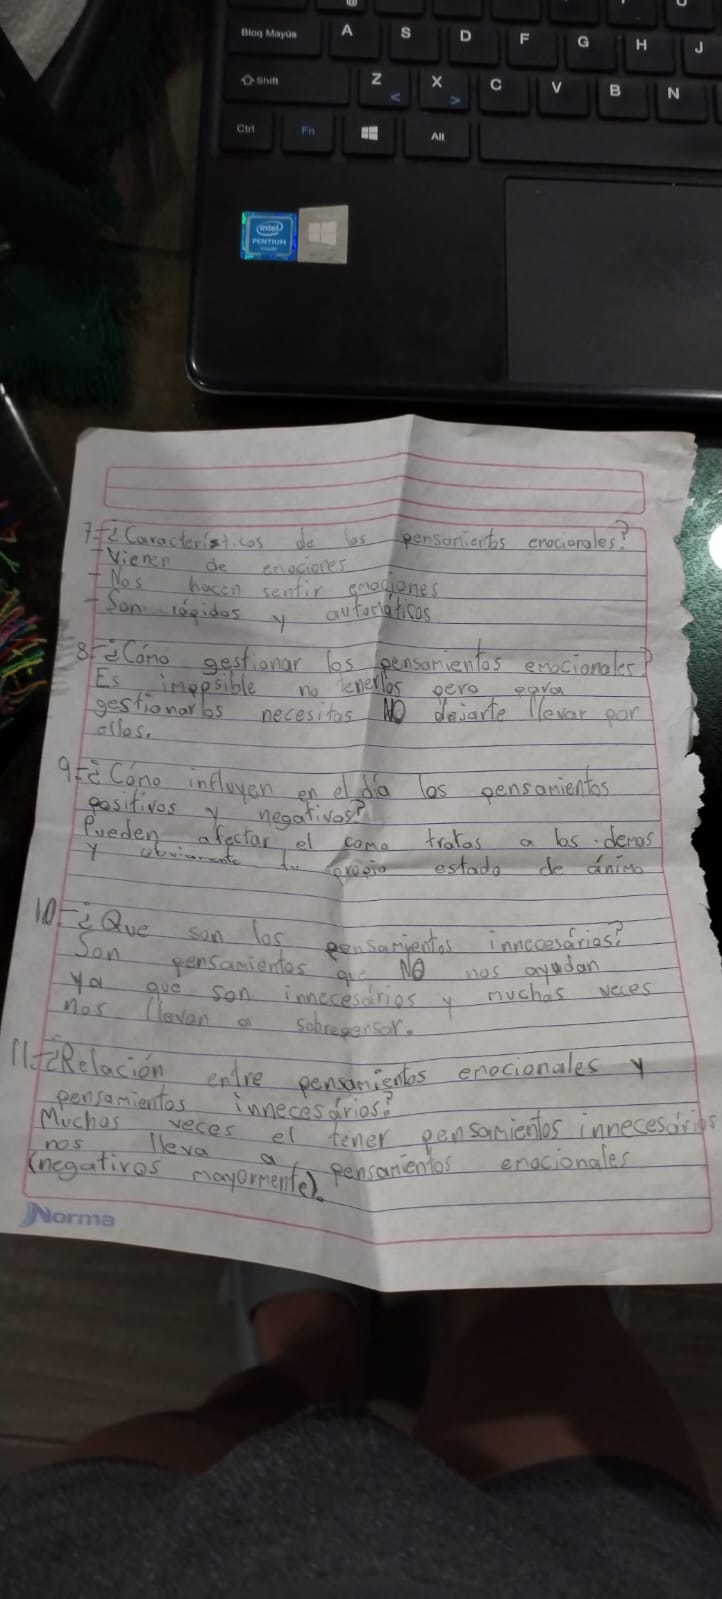 Bloq Mayús A S D F G H J
Shift Z X C V B N
< >
Ctrl Fn Alt
intel
PENTIUM
inside
7-¿Caracteristicas de los pensamientos emocionales?
- Vienen de emociones
- Nos hacen sentir emociones
- Son rápidos y automáticos
8-¿Cómo gestionar los pensamientos emocionales?
Es imposible no tenerlos pero para
gestionarlos necesitas NO dejarte llevar por
ellos.
9-¿Cómo influyen en el día los pensamientos
positivos y negativos?
Pueden afectar el como tratas a los demas
y obviamente tu propio estado de ánimo
10-¿Que son los pensamientos innecesários?
Son pensamientos que NO nos ayudan
ya que son innecesários y muchas veces
nos llevan a sobrepensar.
11-¿Relación entre pensamientos emocionales y
pensamientos innecesários?
Muchas veces el tener pensamientos innecesários
nos lleva a pensamientos emocionales
(negativos mayormente).
Norma